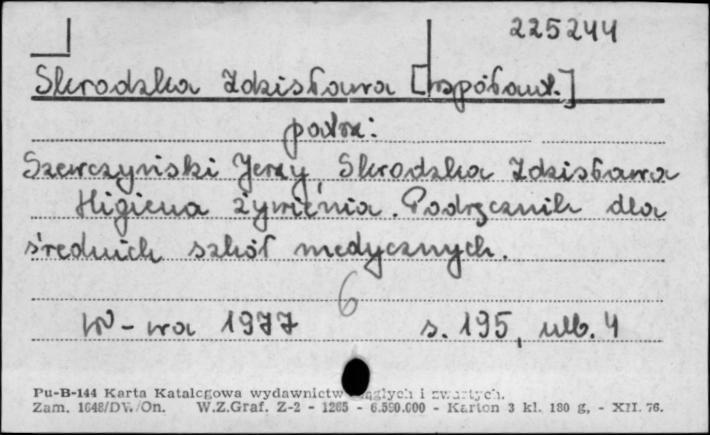 225244
Skrodzka Zdzisława [współaut.]
patrz:
Szewczyński Jerzy, Skrodzka Zdzisława
Higiena żywienia. Podręcznik dla
średnich szkół medycznych.
6
W-wa 1977 s. 195, nlb. 4
Pu-B-144 Karta Katalogowa wydawnictw ciągłych i zwartych.
Zam. 1648/DW./On. W.Z.Graf. Z-2 - 1265 - 6.590.000 - Karton 3 kl. 180 g. - XII. 76.